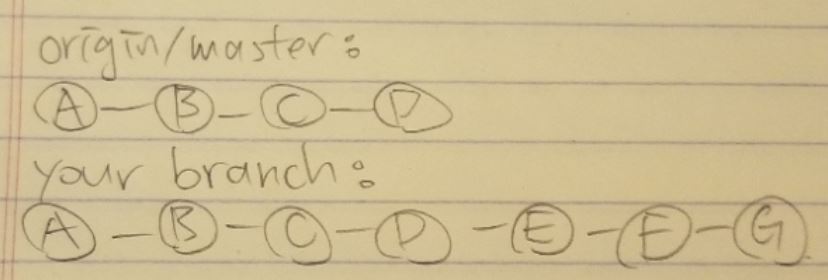 origin/master:
A-B-C-D
your branch:
A-B-C-D-E-F-G